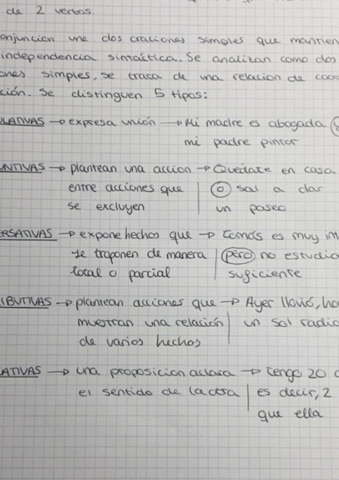 de 2 verbos.
onjuncion une dos oraciones simples que mantien
independencia sintáctica. Se analizan como dos
ones simples, se trata de una relacion de coor
ción. Se distinguen 5 tipos:
ULATIVAS → expresa unión → Mi madre es abogada
mi padre pintor
UNTIVAS → plantean una accion → Quedate en casa
entre acciones que o sal a dar
se excluyen un paseo
ERSATIVAS → expone hechos que → Tomás es muy in
se troponen de manera pero no estudio
total o parcial suficiente
IBUTIVAS → plantean acciones que → Ayer llovió, ho
muestran una relación un sol radia
de varios hechos
ATIVAS → una proposicion aclara → tengo 20
el sentido de la otra es decir, 2
que ella